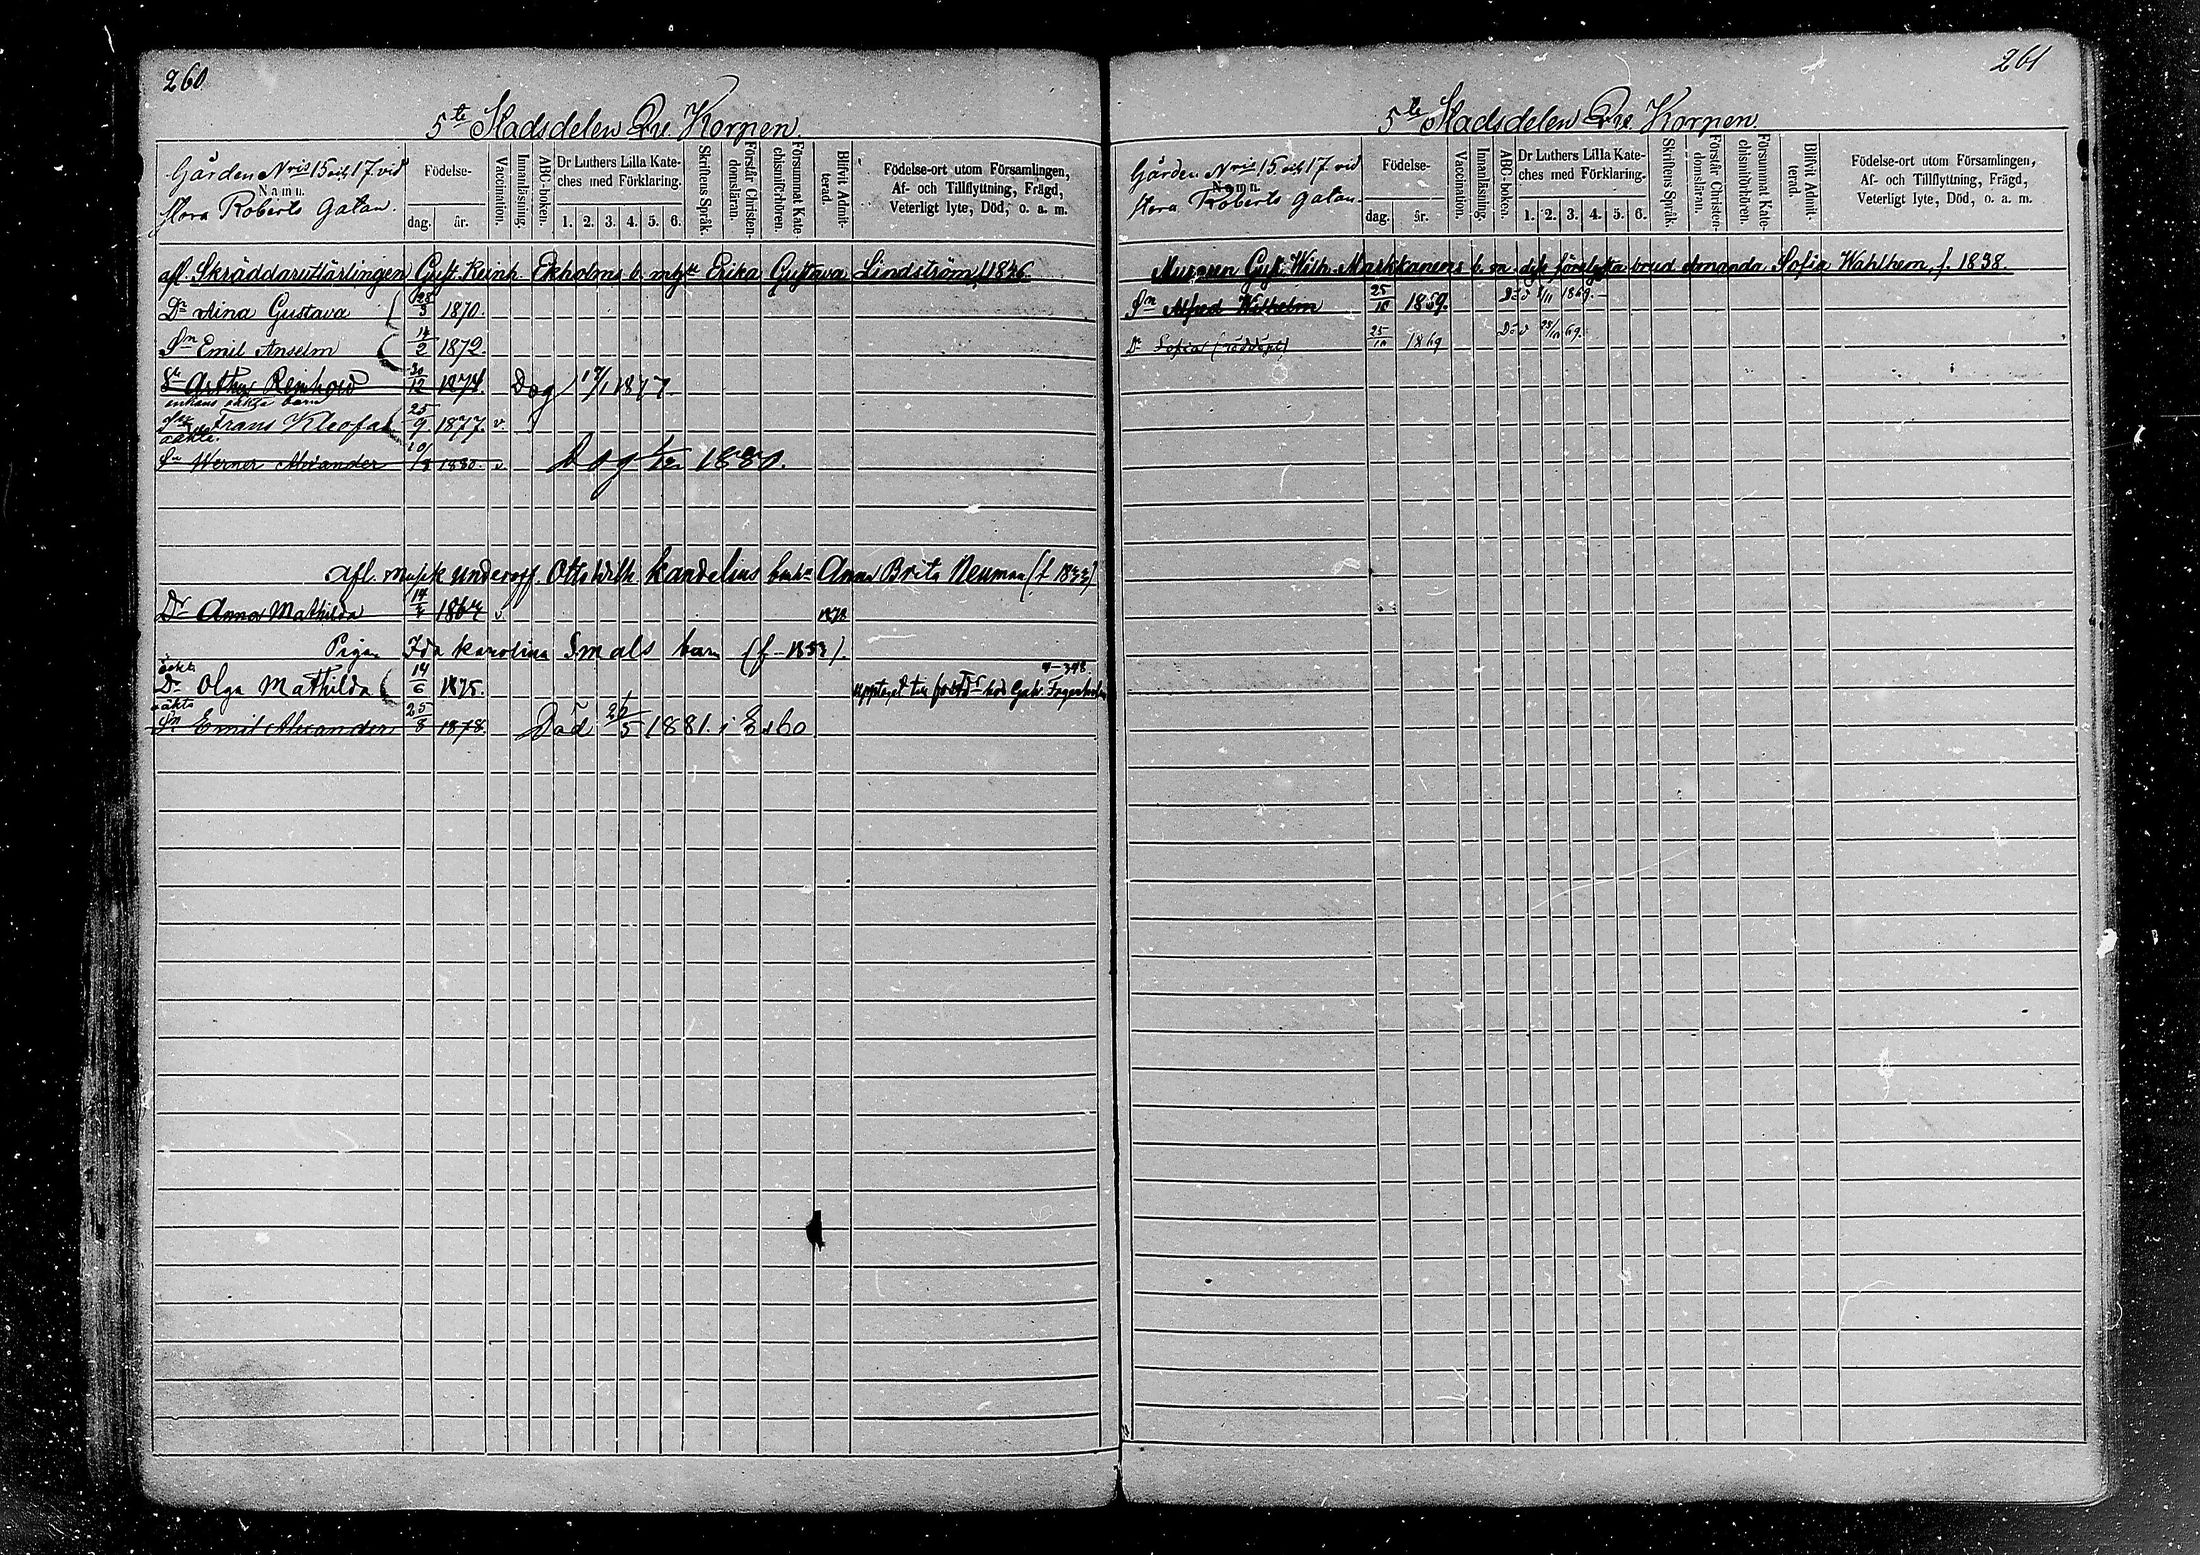 260
5te Stadsdelen Qu. Korpen.
Gården Nris 15 och 17 vid
Namn.
Stora Roberts gatan.
Födelse-
dag. år.
Vaccination.
Innanläsning.
ABC-boken.
Dr Luthers Lilla Kate-
ches med Förklaring.
1. 2. 3. 4. 5. 6.
Skriftens Språk.
Förstår Christen-
domsläran.
Försummat Kate-
chismiförhören.
Blifvit Admit-
terad.
Födelse-ort utom Församlingen,
Af- och Tillflyttning, Frägd,
Veterligt lyte, Död, o. a. m.
afl. Skräddarutlärlingen Gust. Reinh. Ekholms b. m. Erika Gustava Lindström f. 1846.
Dr Aina Gustava 28/3 1870.
Sn Emil Anselm 14/2 1872.
Sn Arthur Reinhold 30/12 1874. Dog 17/1 1877.
enkans oäkta barn
Sn Frans Kleofas 25/9 1877. v.
oäkta.
Sn Werner Alexander 10/8 1880. v Dog 1/12 1880.
afl. Musik underoff. Otto Wilh. Kandelins Anna Brita Neuman
Dr Anna Mathilda 14/4 1862 v. 1878
Pigan Ida Karolina Smals barn (f. 1853).
oäkta
Dr Olga Mathilda 14/6 1875. upptaget till fosterdr hos Gabr. Fagerholm
oäkta
Sn Emil Alexander 25/8 1878. Död 26/5 1881. i 60
261
5te Stadsdelen Qu. Korpen.
Gården Nris 15 och 17 vid
Namn.
Stora Roberts gatan.
Födelse-
dag. år.
Vaccination.
Innanläsning.
ABC-boken.
Dr Luthers Lilla Kate-
ches med Förklaring.
1. 2. 3. 4. 5. 6.
Skriftens Språk.
Förstår Christen-
domsläran.
Försummat Kate-
chismiförhören.
Blifvit Admit-
terad.
Födelse-ort utom Församlingen,
Af- och Tillflyttning, Frägd,
Veterligt lyte, Död, o. a. m.
Muraren Gust. Wilh. Markkanens b. m. brud Amanda Sofia Wahlhem, f. 1838.
Sn Alfred Wilhelm 25/10 1869. Död 1/11 1869.
Dr Sofia (nöddöpt) 25/10 1869 Död 28/10 69.